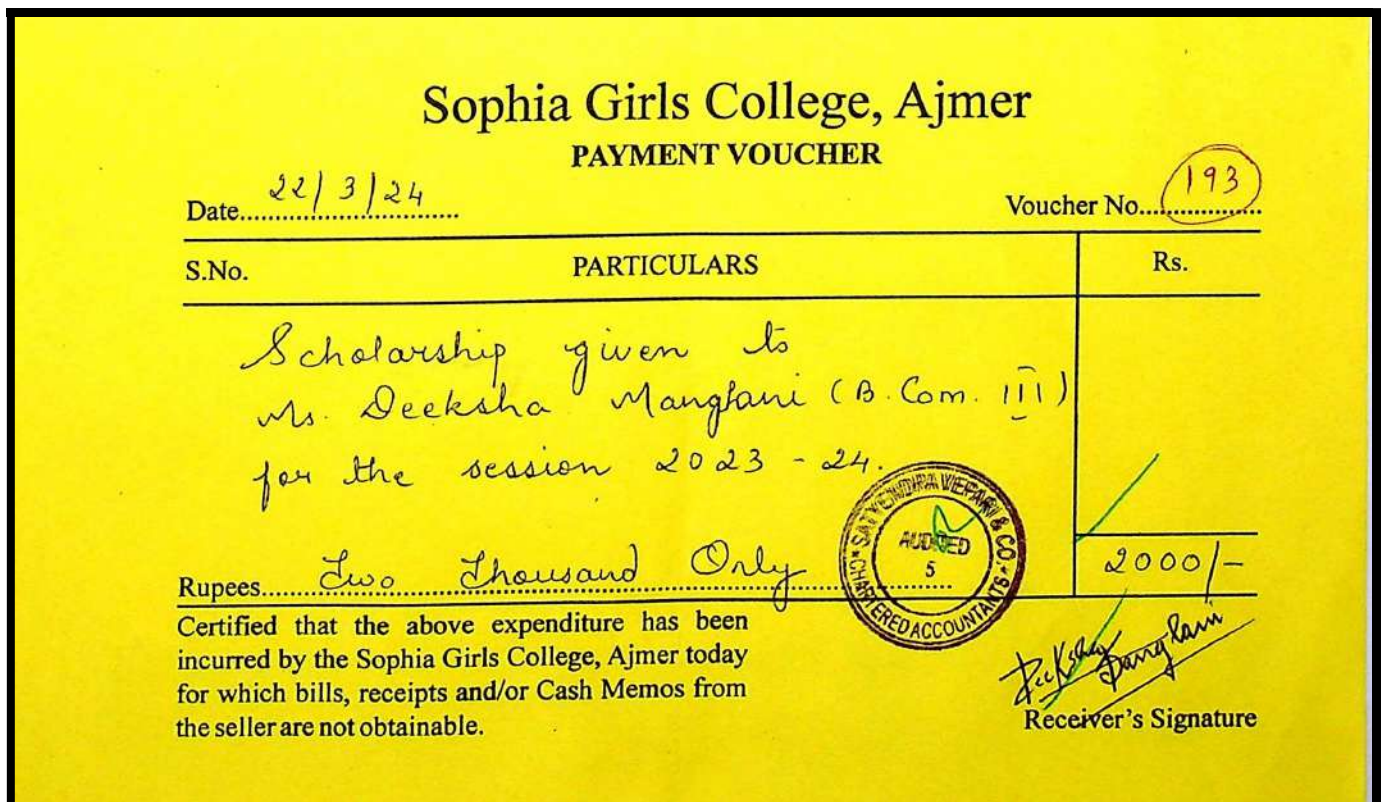 Sophia Girls College, Ajmer
PAYMENT VOUCHER
Date 22/3/24 Voucher No. 193
S.No. PARTICULARS Rs.
Scholarship given to
Ms. Deeksha Manglani (B.Com. III)
for the session 2023-24.
SATYENDRA VIEPARI & CO
AUDITED
5
CHARTERED ACCOUNTANTS
Rupees Two Thousand Only 2000/-
Certified that the above expenditure has been
incurred by the Sophia Girls College, Ajmer today
for which bills, receipts and/or Cash Memos from
the seller are not obtainable.
Deeksha Manglani
Receiver's Signature